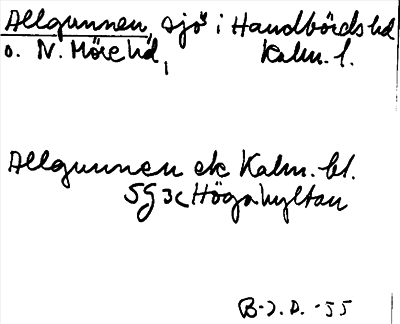 Allgunnen, sjö i Handbörds hd
o. N. Möre hd, Kalm. l.
Allgunnen ek Kalm. bl.
5G 3c Högahyltan
B-J. D. -55